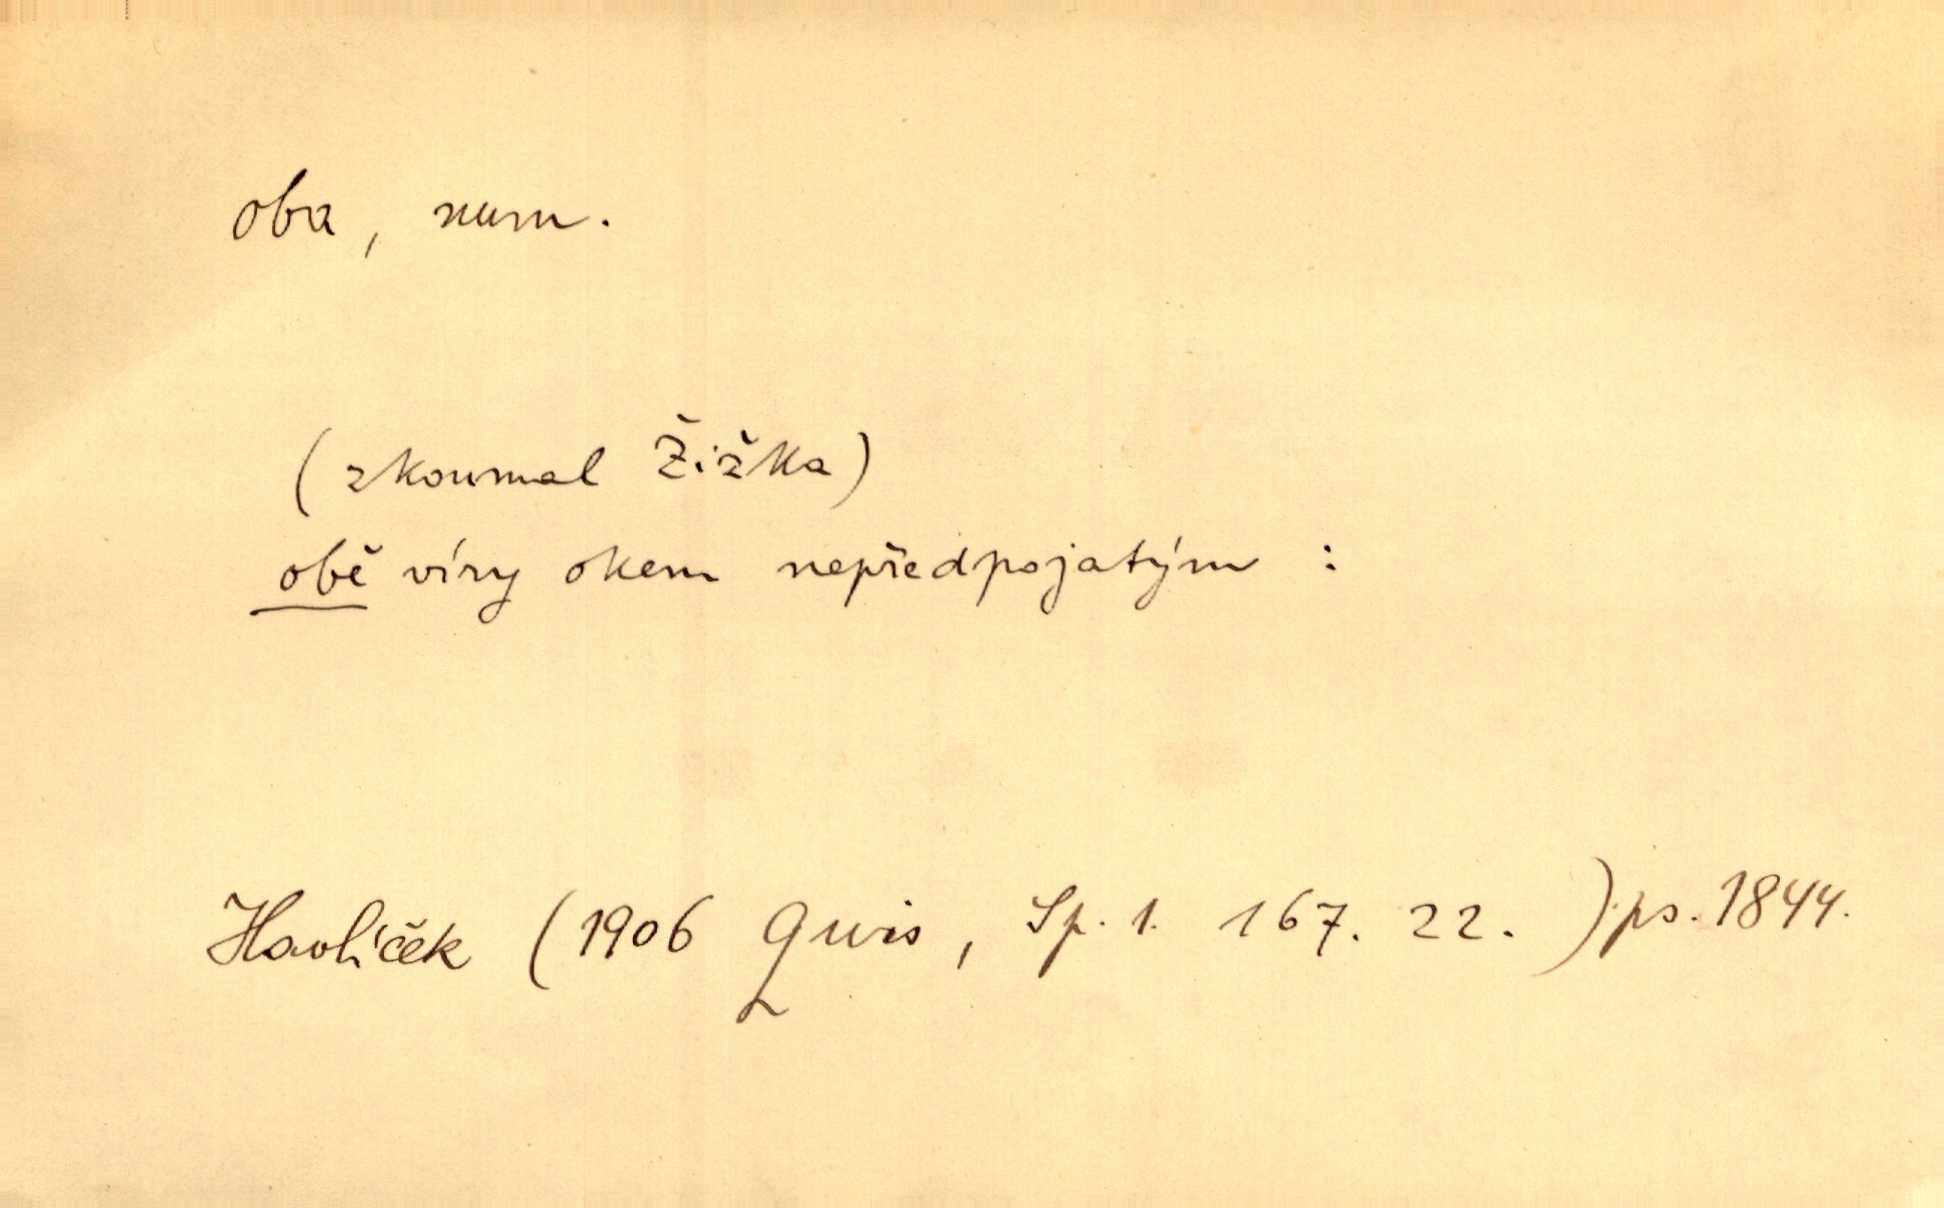 oba, num.
(zkoumal Žižka)
obě víry okem nepředpojatým :
Havlíček (1906 Quis, Sp. 1. 167. 22. ) ps. 1844.